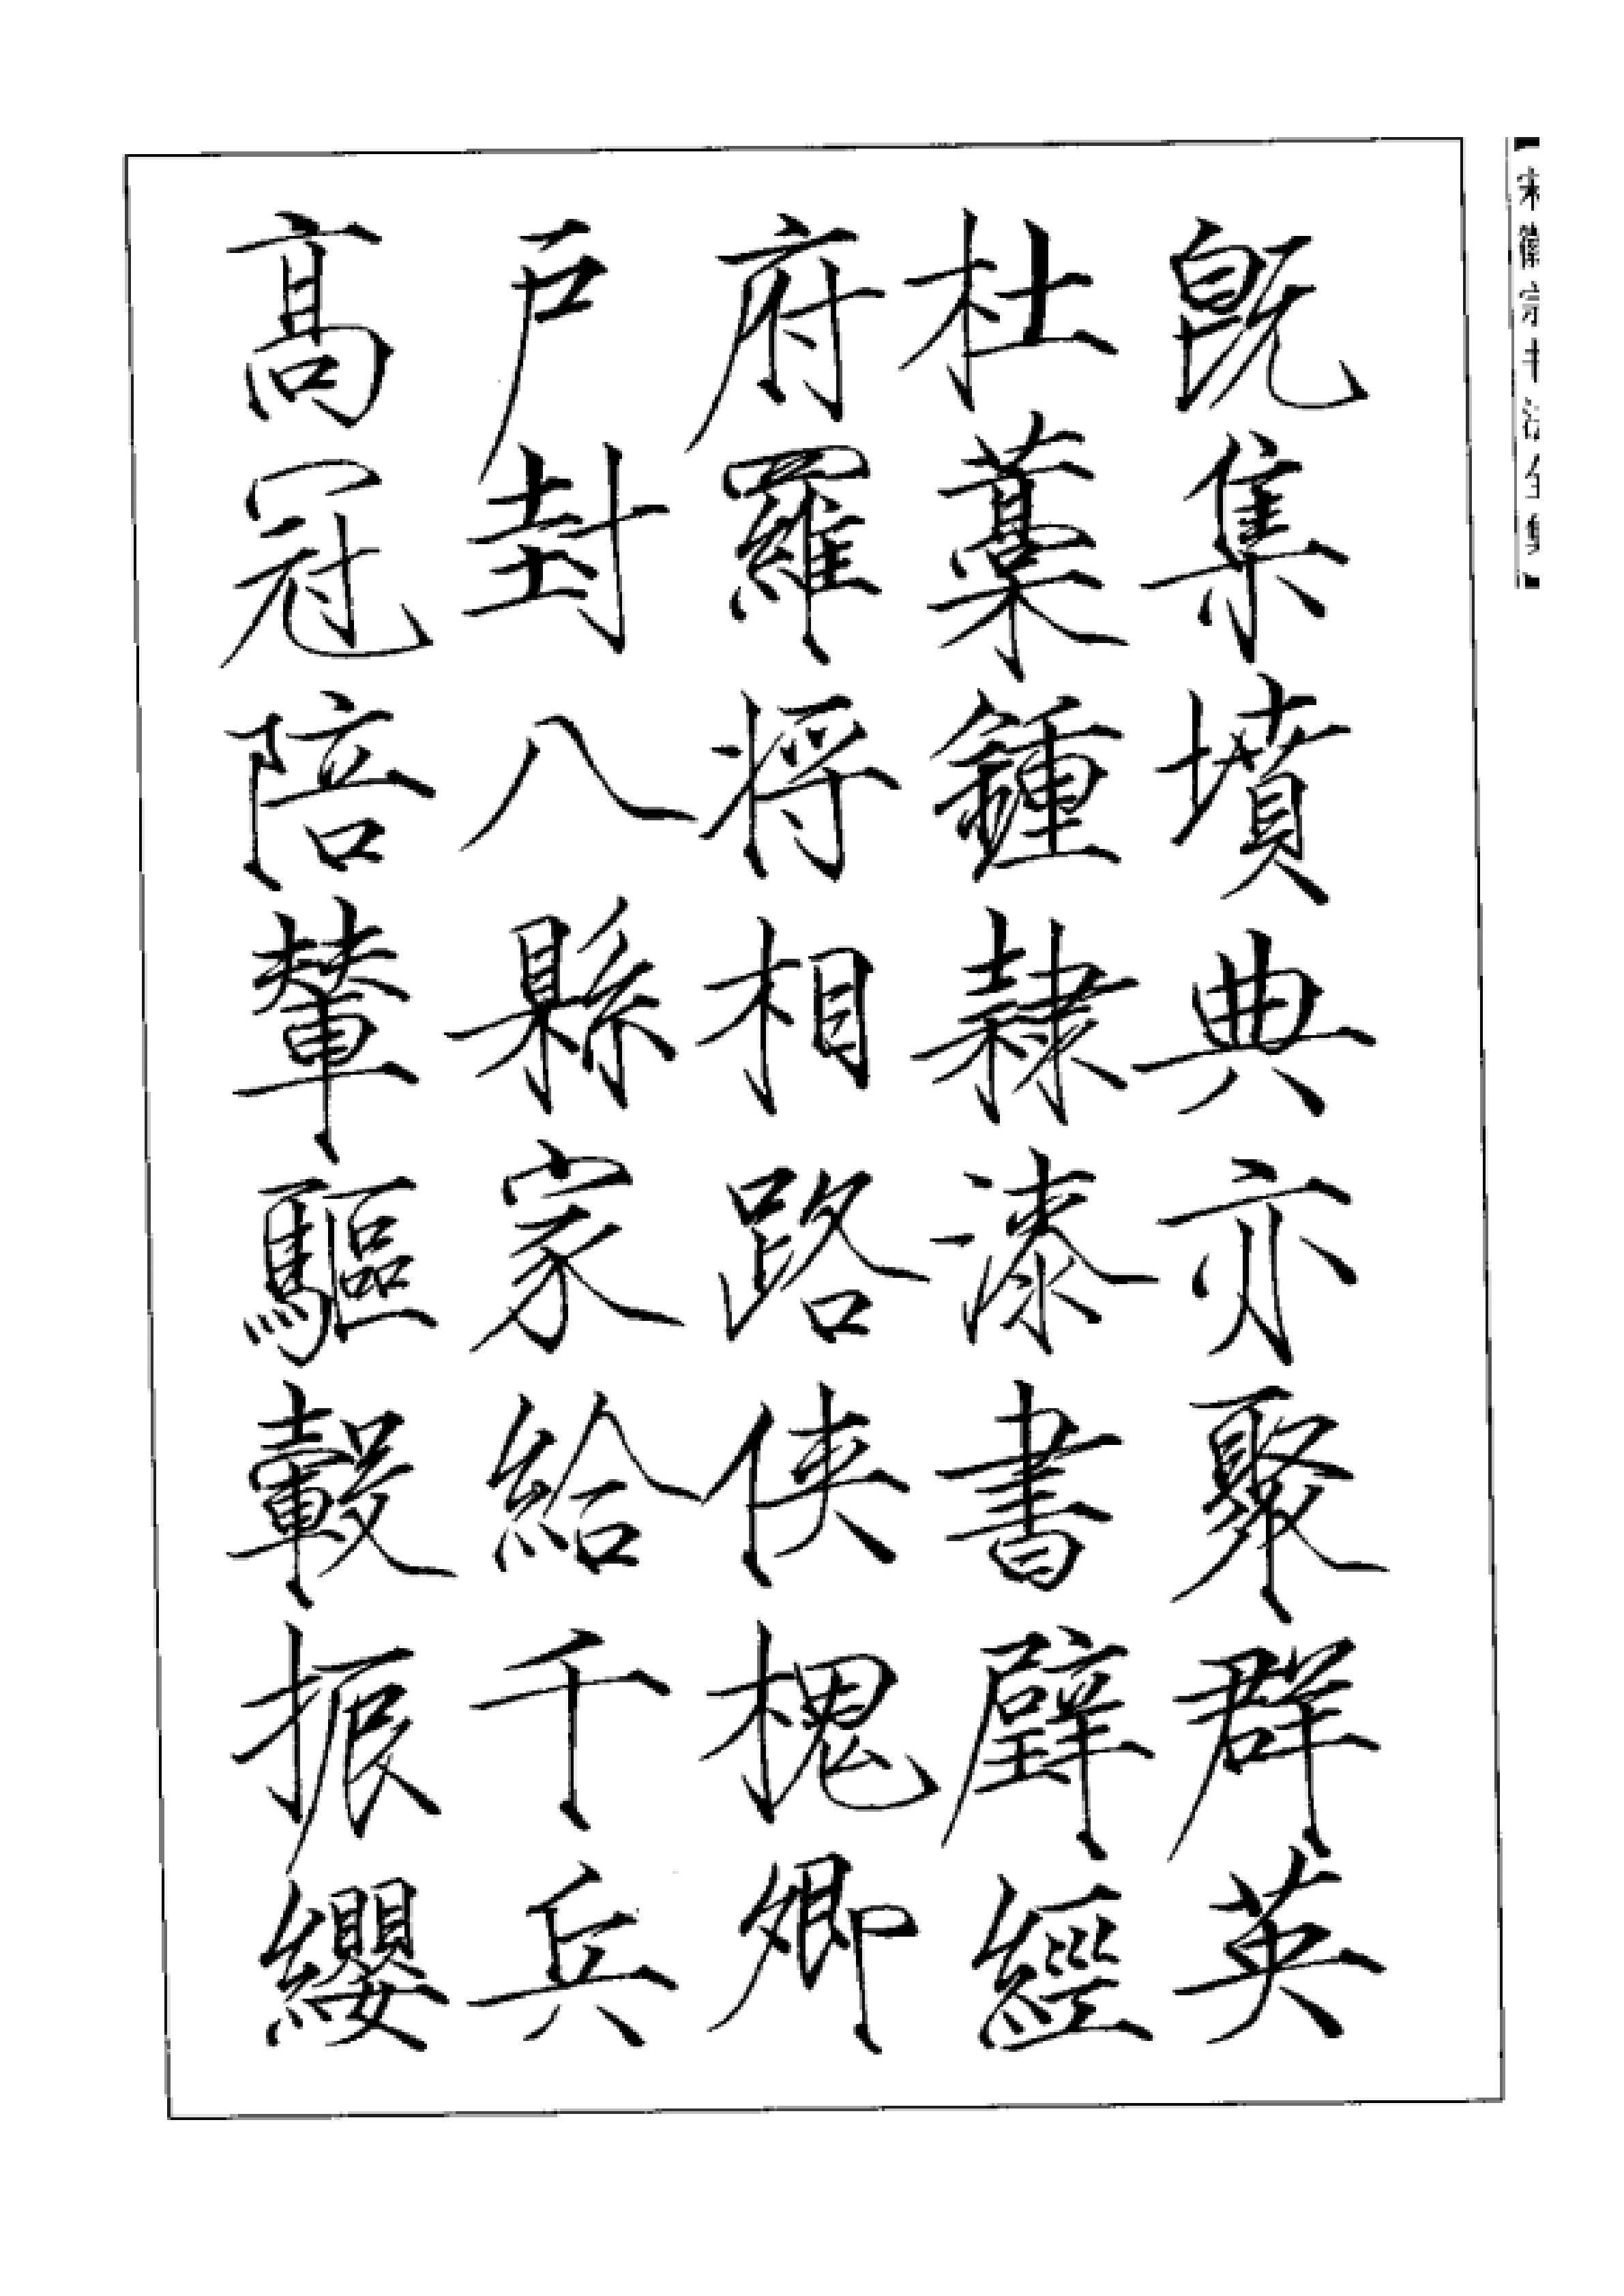 既集墳典亦聚群英
杜藁鍾隸漆書壁經
府羅將相路俠槐卿
戶封八縣家給千兵
高冠陪輦驅轂振纓
宋徽宗书法全集